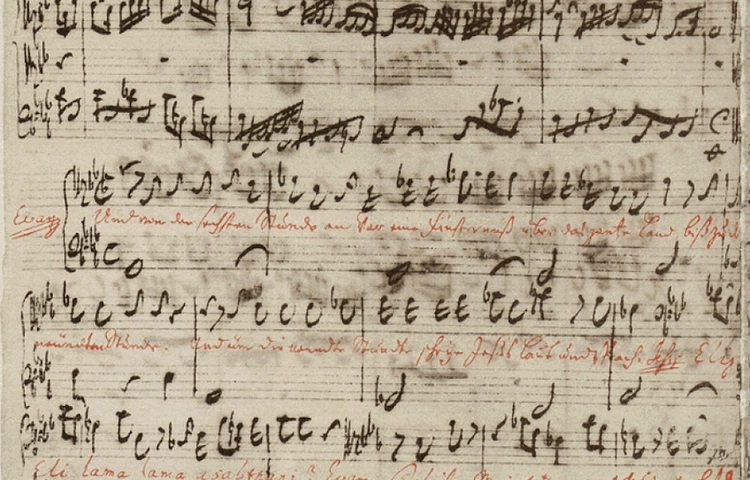 Evang. Und von der sechsten Stunde an war eine Finsterniß über das gantze Land biß zu d
neündten Stunde. Und um die neundte Stunde schrye Jesus laut und sprach. Jesus Eli,
Eli lama lama asabthani? Evang.